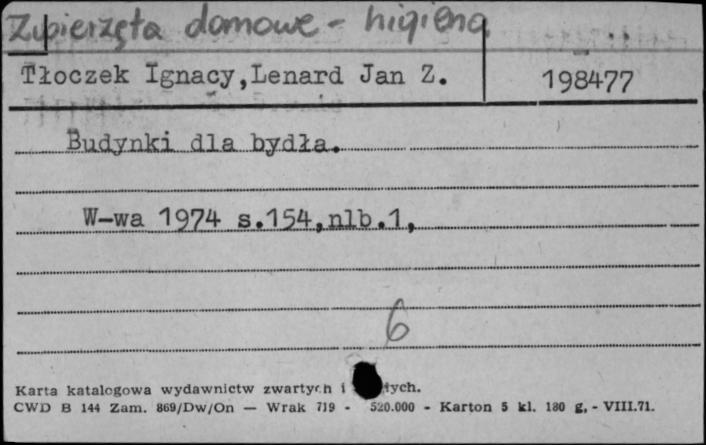 Zwierzęta domowe - higiena
Tłoczek Ignacy,Lenard Jan Z. 198477
Budynki dla bydła.
W-wa 1974 s.154,nlb.1,
6
Karta katalogowa wydawnictw zwartych i
CWD B 144 Zam. 869/Dw/On — Wrak 719 - 520.000 - Karton 5 kl. 180 g, - VIII.71.